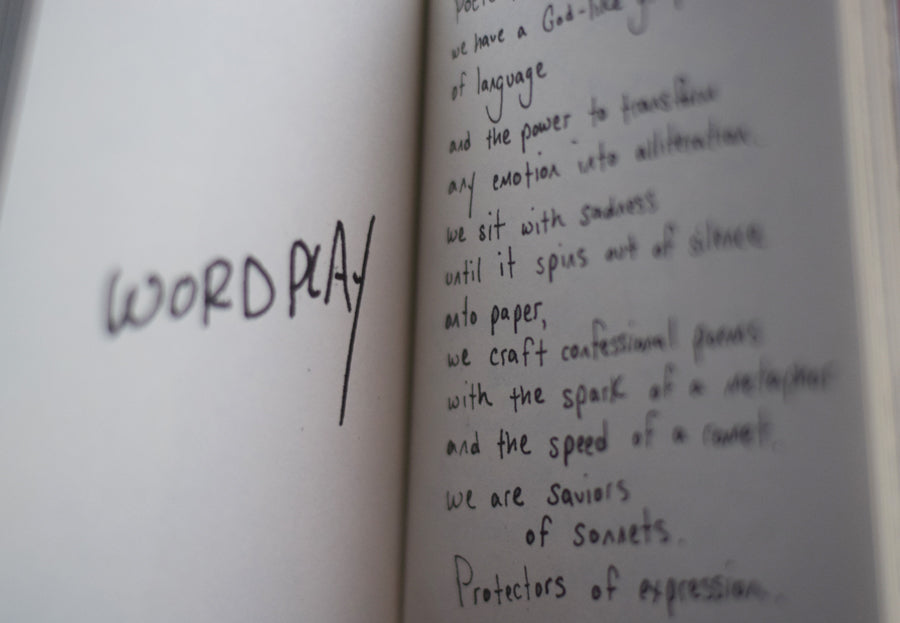 WORDPLAY
we have a God-like
of language
and the power to transform
any emotion into alliteration.
we sit with sadness
until it spins out of silence
onto paper,
we craft confessional poems
with the spark of a metaphor
and the speed of a comet.
we are saviors
of sonnets.
Protectors of expression.